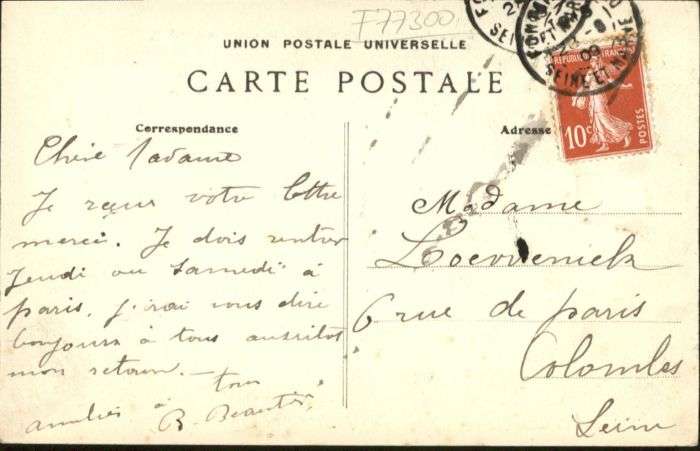 F77300
UNION POSTALE UNIVERSELLE
CARTE POSTALE
Correspondance
Chère Madame
Je reçus votre lettre
merci. Je dois rentrer
Jeudi ou Samedi à
paris. J'irai vous dire
bonjours à tous aussitot
mon retour. —
amitiés à tous
B.
Adresse
SEINE ET MARNE
REPUBLIQUE FRANC
10c
POSTES
Madame
6 rue de paris
Colombes
Seine